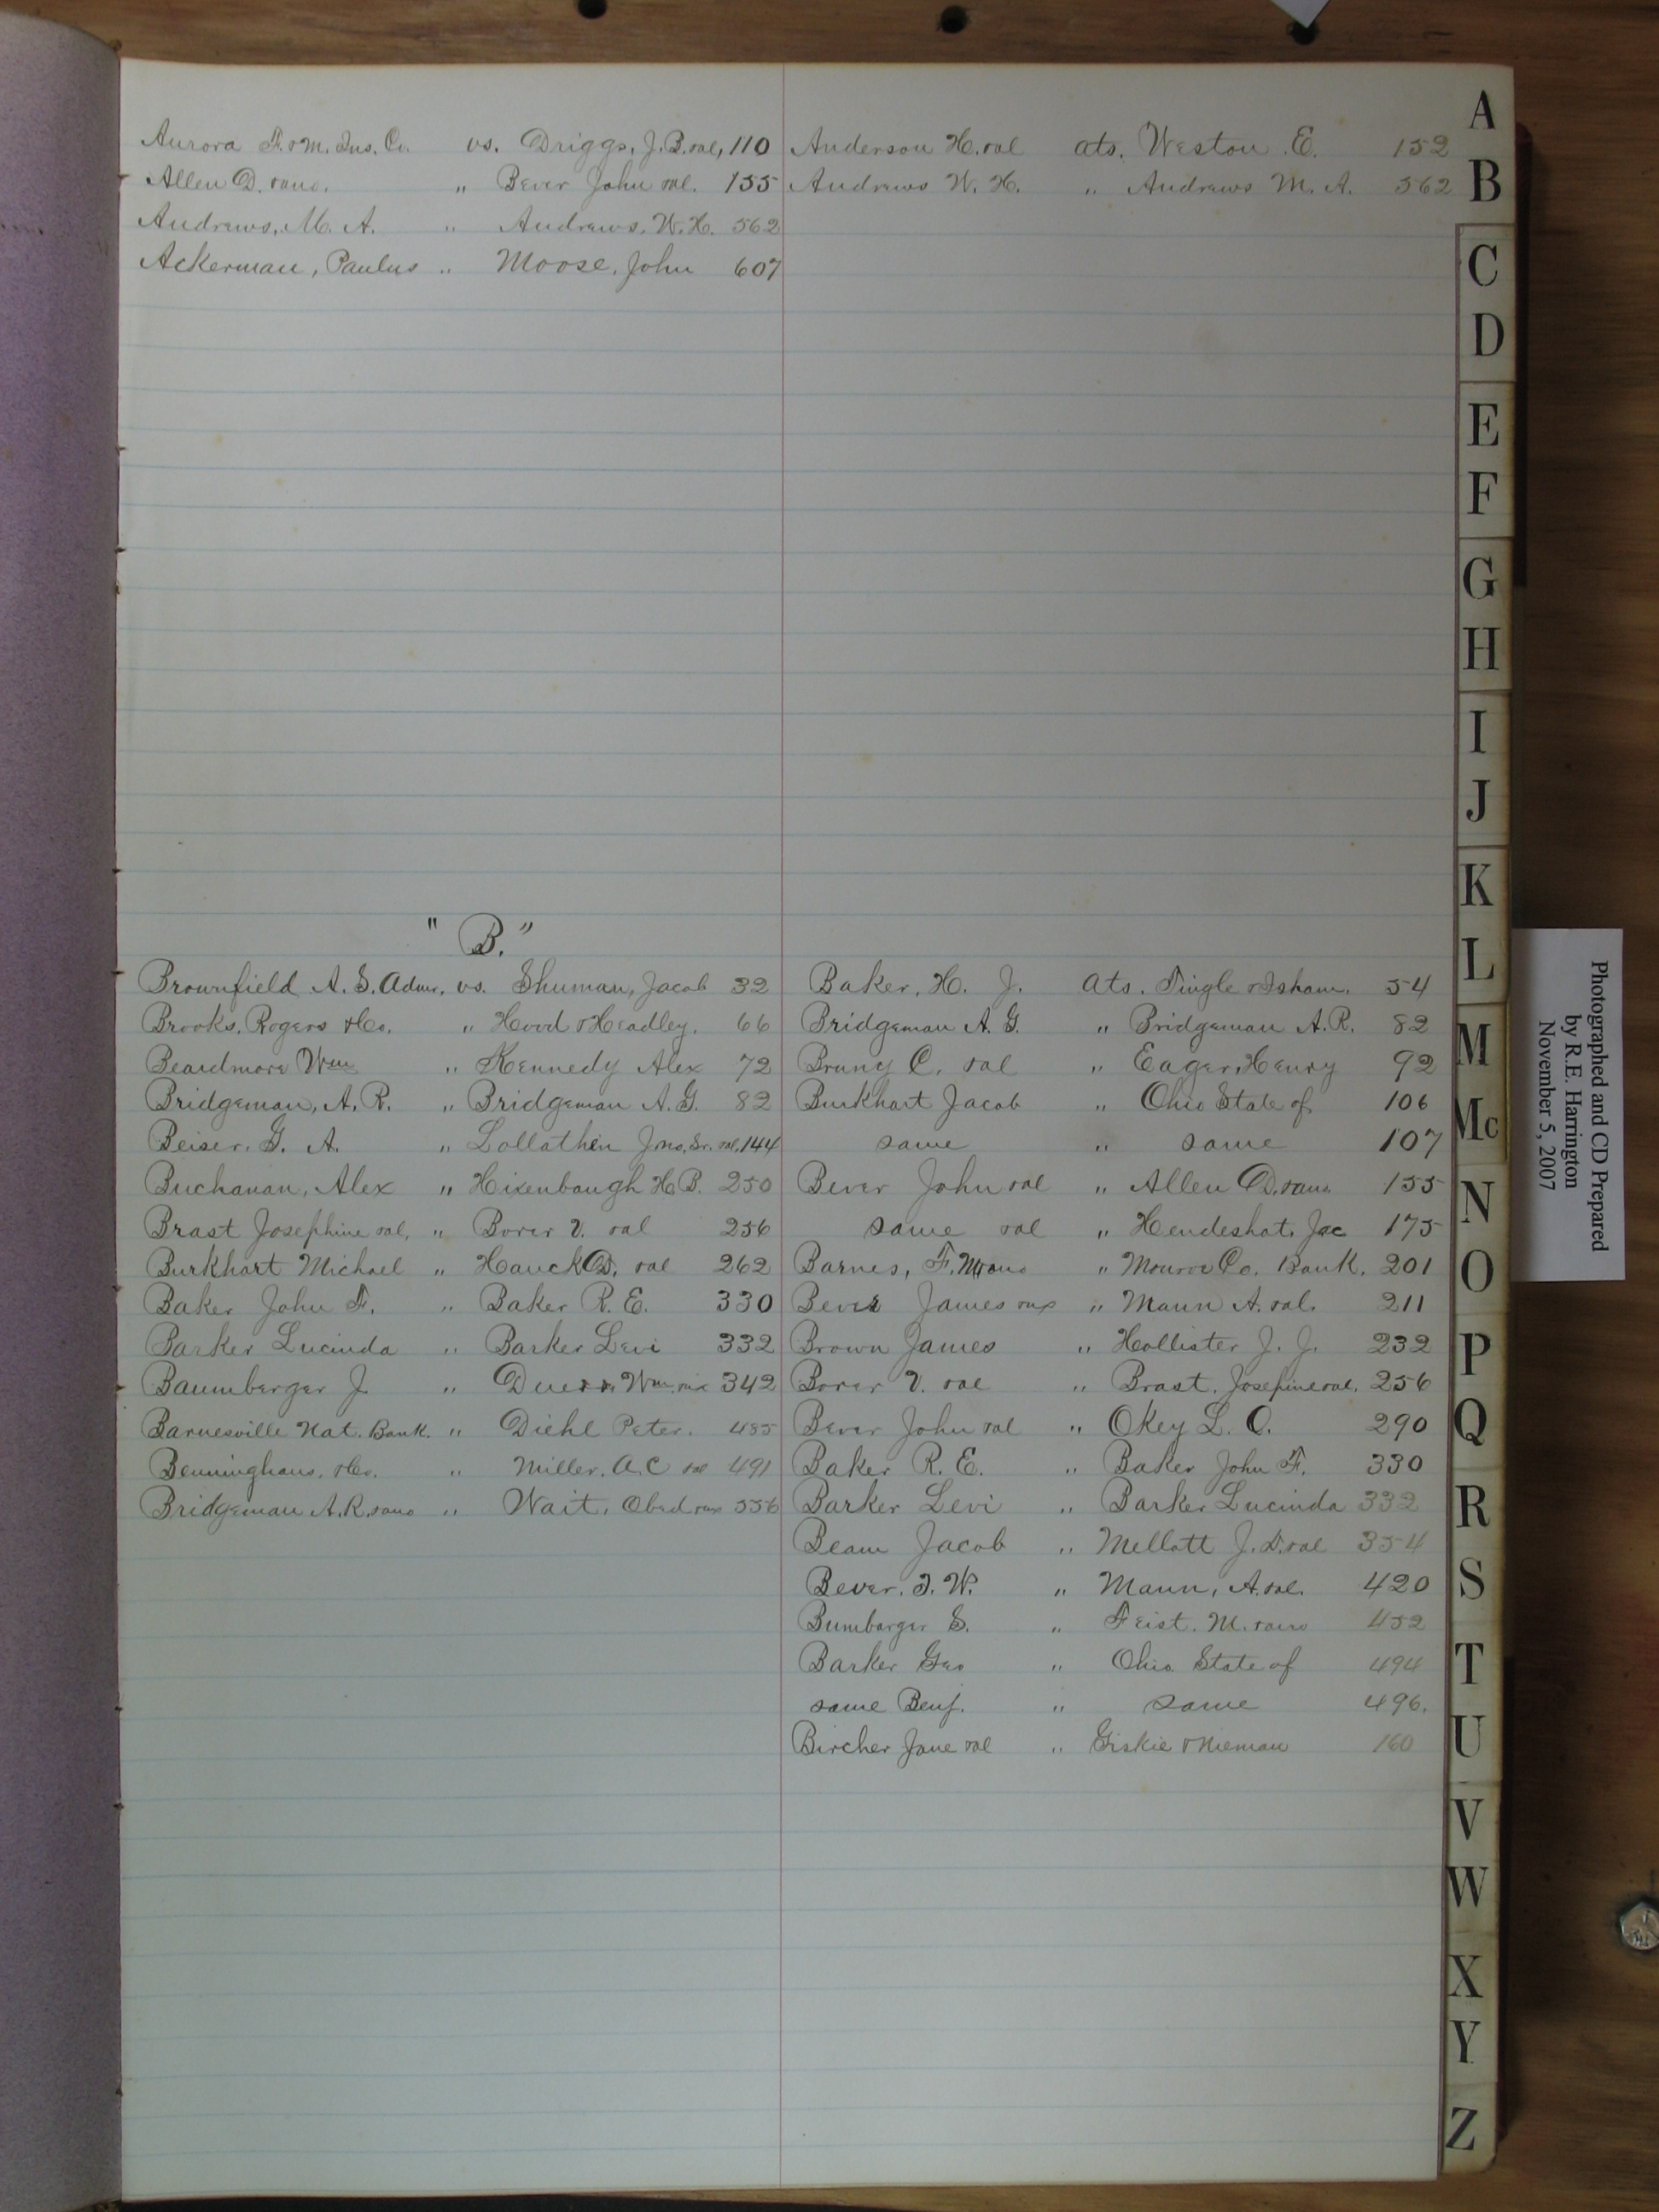 Aurora F. & M. Ins. Co. vs. Driggs, J. B. &al, 110
Allen D. &ano. " Bever John &al. 155
Andrews, M. A. " Andrews, W. H. 562
Ackerman, Paulus " Moose, John 607
Anderson H. &al ats. Weston E. 152
Andrews W. H. " Andrews M. A. 562
" B. "
Brownfield A. S. Admr, vs. Shuman, Jacob 32
Brooks, Rogers &Co. " Hood & Headley. 66
Beardmore Wm " Kennedy Alex 72
Bridgeman, A. R. " Bridgeman A. G. 82
Beiser, G. A. " Lollathin Jno, Sr. &al, 144
Buchanan, Alex " Hixenbaugh H B. 250
Brast Josephine &al, " Borer V. &al 256
Burkhart Michael " Hauck D, &al 262
Baker John F. " Baker R. E. 330
Barker Lucinda " Barker Levi 332
Baumberger J. " Wm, 342
Barnesville Nat. Bank. " Diehl Peter. 485
Benninghaus, &Co. " Miller, A. C &al 491
Bridgeman A. R. &ano " Wait, Obed &ux 556
Baker, H. J. ats. Tingle & Isham. 54
Bridgeman A. G. " Bridgeman A. R. 82
Bruny C. &al " Eager, Henry 92
Burkhart Jacob " Ohio State of 106
same " same 107
Bever John &al " Allen D. &ano. 155
same &al " Hendeshot, Jac 175
Barnes, F. M &ano " Monroe Co. Bank. 201
Bever James &ux " Mann A. &al. 211
Brown James " Hollister J. J. 232
Borer V. &al " Brast, Josefine &al, 256
Bever John &al " Okey L. O. 290
Baker R. E. " Baker John F. 330
Barker Levi " Barker Lucinda 332
Beam Jacob " Mellott J. D. &al 354
Bever, J. W. " Mann, A. &al. 420
Bumbarger S. " Feist, M. &ano 452
Barker Geo " Ohio State of 494
same Benj. " same 496.
Bircher Jane &al " Giskie & Nieman 160
A
B
C
D
E
F
G
H
I
J
K
L
M
Mc
N
O
P
Q
R
S
T
U
V
W
X
Y
Z
Photographed and CD Prepared
by R.E. Harrington
November 5, 2007